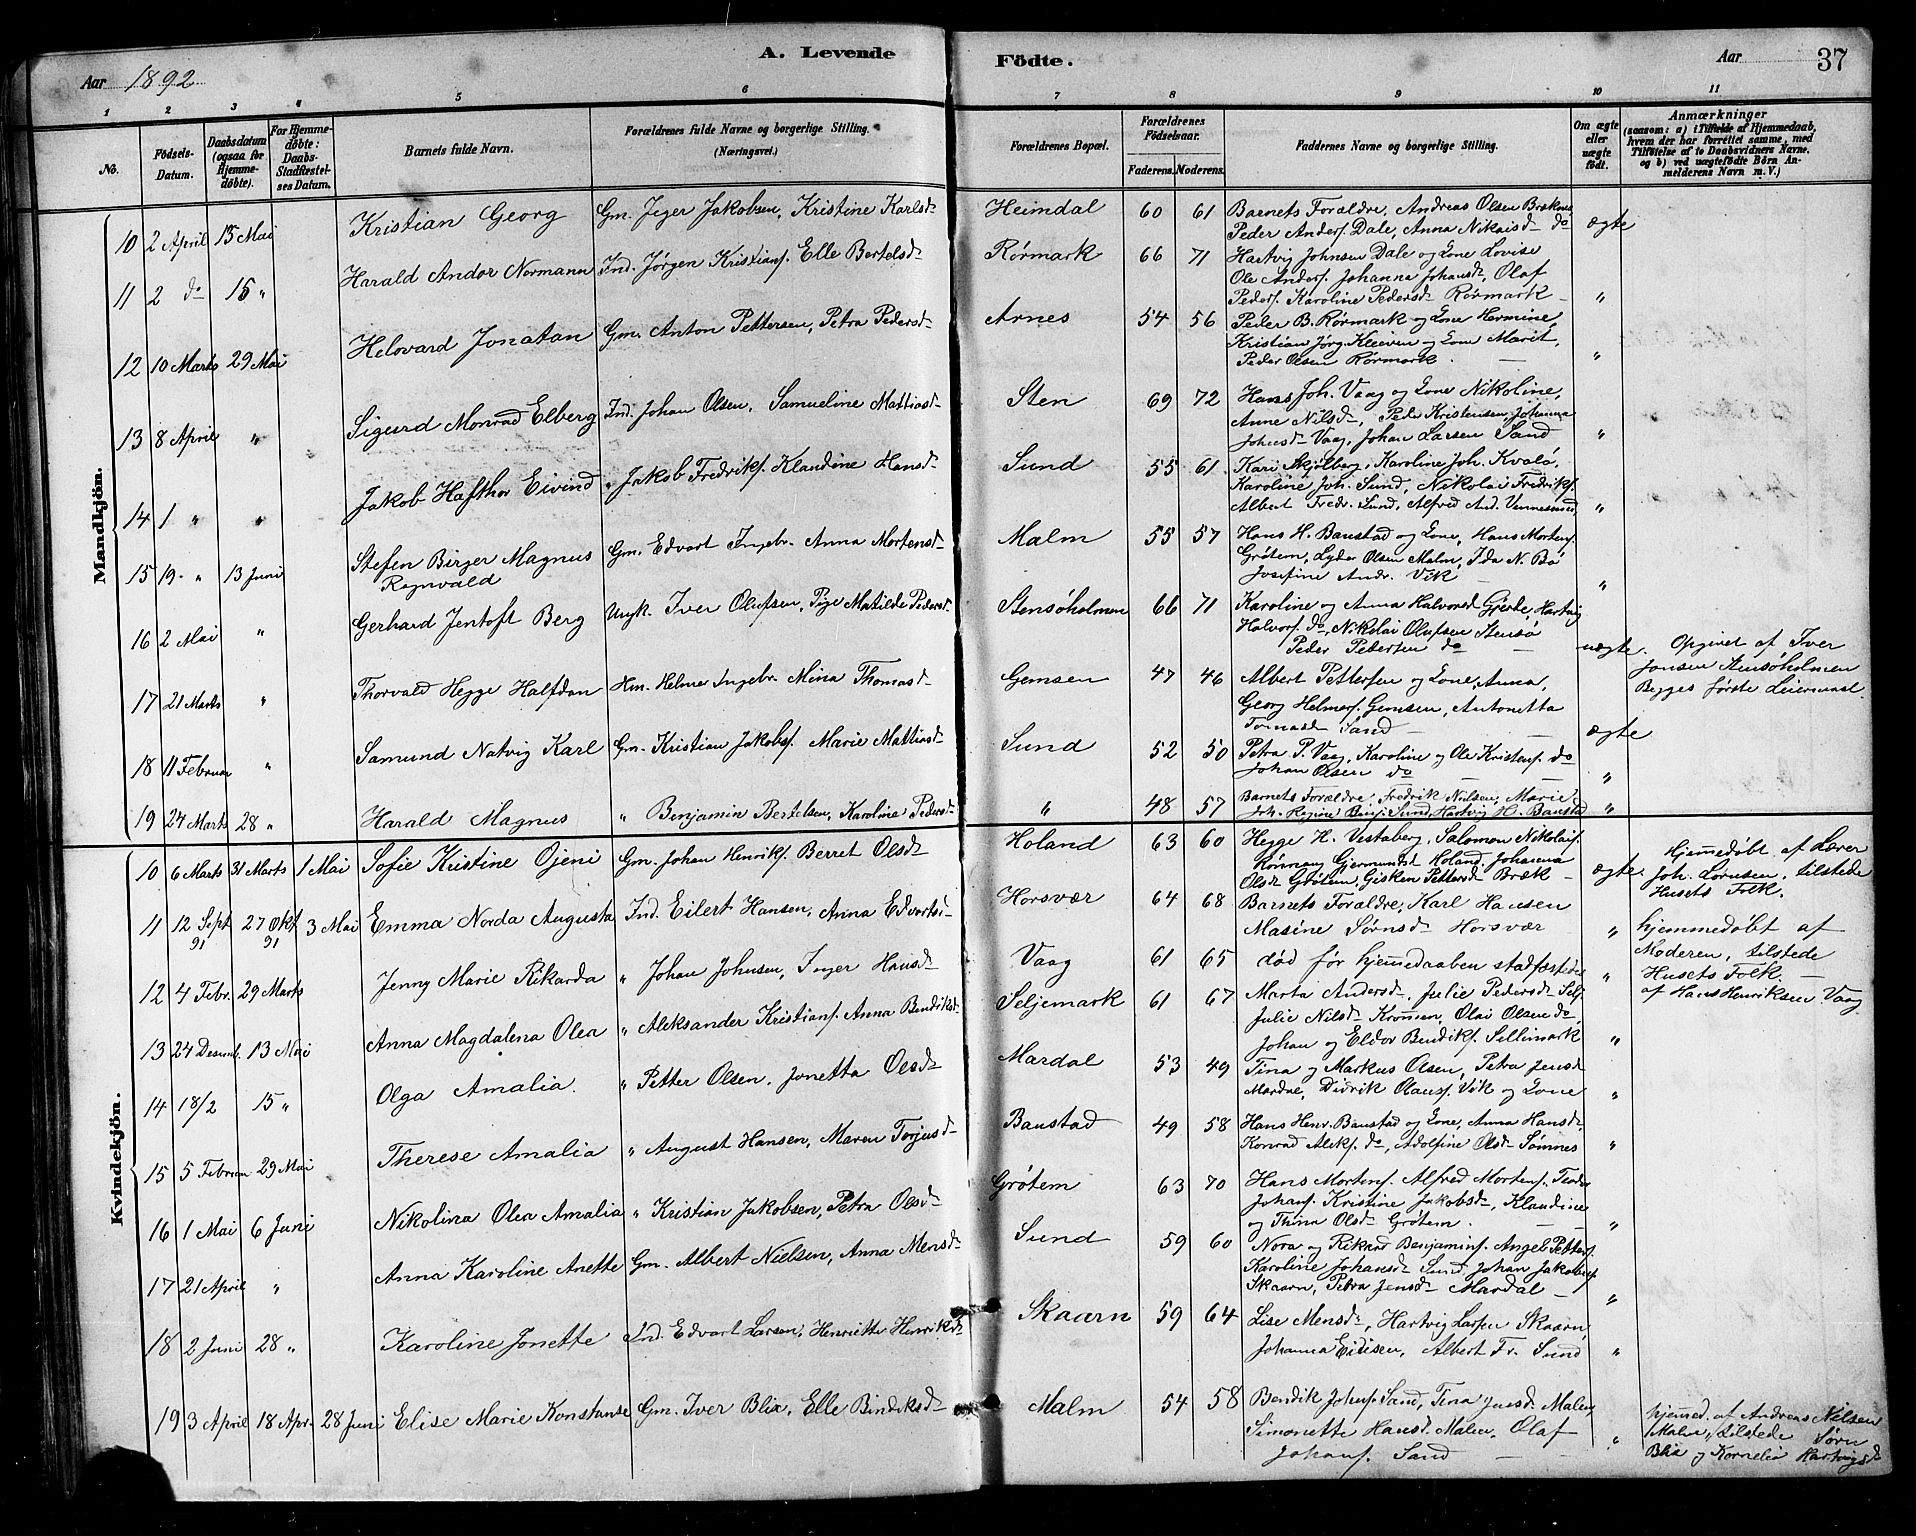 A. Levende Födte.
Aar 1892
Aar 37
1 2 3 4 5 6 7 8 9 10 11
No.
Födsels-Datum.
Daabsdatum (ogsaa for Hjemmedöbte).
For Hjemmedöbte: Daabs-Stadfæstelses Datum.
Barnets fulde Navn.
Forældrenes fulde Navne og borgerlige Stilling. (Næringsvei.)
Forældrenes Bopæl.
Forældrenes Födselsaar.
Faderens. Moderens.
Faddernes Navne og borgerlige Stilling.
Om ægte eller uægte födt.
Anmærkninger
(saasom: a) i Tilfælde af Hjemmedaab, hvem der har forrettet samme, med Tilföielse af to Daabsvidners Navne, og b) ved uægtefödte Börn Anmelderens Navn m. V.)
Mandkjön.
10 2 April 15 Mai Kristian Georg Gm. Jeger Jakobsen, Kristine Karlsd. Heimdal 60 61 Barnets Forældre, Andreas Olsen Bræknes
Peder Anders. Dale, Anna Nikaisd. do ægte
11 2 do 15 " Harald Andor Normann Ind. Jørgen Kristians. Elle Bertelsd. Rørmark 66 71 Hartvig Johnsen Dale og Kone Lovise
Ole Anders. Johanna Johansd., Olaf
Peders. Karoline Pedersd. Rørmark "
12 10 Marts 29 Mai Helovard Jonatan Gm. Anton Pettersen, Petra Pedersd. Arnes 54 56 Peder B. Rørmark og Kone Hermine,
Kristian Jørg. Kleiven og Kone Marit,
Peder Olsen Rørmark. "
13 8 April " Sigurd Monrad Elberg Ind. Johan Olsen, Samueline Mattiasd. Sten 69 72 Hans Joh. Vaag og Kone Nikoline,
Anne Nilsd., Peder Kristensen, Johanna
Johnsd. Vaag, Johan Larsen Sand "
14 1 " " Jakob Hafthor Eivind " Jakob Fredriks. Klaudine Hansd. Sund 55 61 Kari Skjølberg, Karoline Joh. Kvalø,
Karoline Joh. Sund, Nikolai Fredriks.
Albert Fredr. Sund, Alfred And. Vennesund "
15 19 " 13 Juni Stefen Birger Magnus Gm. Edvart Ingebr. Anna Mortensd. Malm 55 57 Hans H. Baustad og Kone, Hans Mortens.
Ragnvald Grøtem, Lyder Olsen Malm, Ida N. Bø
Josefine Andr. Vik "
16 2 Mai " Gerhard Jentoft Berg Ungk. Iver Olufsen, Pige Matilde Pedersd. Stensøholmen 66 71 Karoline og Anna Halvorsd. Gjerde, Hartvig
Halvors. do, Nikolai Olufsen Stensø
Peder Pedersen do uægte. Opgivet af Iver
Jonsen Stensøholmen
Begges første Leiermaal.
17 21 Marts " Thorvald Hegge Halfdan Hm. Helmer Ingebr. Mina Thomasd. Gemsen 47 46 Albert Pettersen og Kone, Anna,
Georg Helmers. Gemsen, Antonetta
Tomasd. Sand ægte
18 11 Februar " Samund Natvig Karl Gm. Kristian Jakobs. Marie Mattiasd. Sund 52 50 Petra P. Vaag, Karoline og Ole Kristens. do
Johan Olsen do "
19 24 Marts 28 " Harald Magnus " Benjamin Bertelsen, Karoline Pedersd. " 48 57 Barnets Forældre, Fredrik Nielsen, Marie
Joh. Regine Benj. Sund, Hartvig H. Baustad "
Kvindekjön.
10 6 Marts 31 Marts 1 Mai Sofie Kristine Ojeni Gm. Johan Henriks. Berret Olsd. Holand 63 60 Hegge H. Vestaberg, Salomon Nikolais.
Rønnaug Gjermundsd. Holand, Johanna
Olsd. Grøtem, Gisken Pettersd. Bræk ægte. Hjemmedøbt af Lærer
Joh. Lorntsen, tilstede
Husets Folk.
11 12 Sept. 91 27 Okt. 91 3 Mai Emma Norda Augusta Ind. Eilert Hansen, Anna Edvartsd. Horsvær 64 68 Barnets Forældre, Karl Hansen
Masine Sørnsd. Horsvær " hjemmedøbt af
Moderen, tilstede
Husets Folk.
12 4 Febr. 29 Marts Jenny Marie Rikarda " Johan Johnsen, Inger Hansd. Vaag 61 65 død før hjemmedaaben stadfæstedes " af Hans Henriksen Vaag
13 24 Desemb. 13 Mai Anna Magdalena Olea " Aleksander Kristians. Anna Bendiksd. Seljemark 61 67 Marta Andersd., Julie Pedersd. Selj.
Julie Nilsd. Kronsen, Olai Olsen do
Johan og Eldor Bendiks. Sellimark "
14 18/2 15 " Olga Amalia. " Petter Olsen, Jonetta Olsd. Mardal 53 49 Tina og Markus Olsen, Petra Jensd.
Mardal, Didrik Olaus. Vik og Kone "
15 5 Februar 29 Mai Therese Amalia " August Hansen, Maren Torjusd. Baustad 49 58 Hans Henr. Baustad og Kone, Anna Hansd.
Konrad Aleks. do, Adolfine Olsd. Sømnes "
16 1 Mai 6 Juni Nikolina Olea Amalia " Kristian Jakobsen, Petra Olsd. Grøtem 63 70 Hans Mortens. Alfred Mortens. Teodor
Johans. Kristine Jakobsd., Klaudine
og Thina Olsd. Grøtem. "
17 21 April " Anna Karoline Anette Gm. Albert Nielsen, Anna Mensd. Sund 59 60 Nora og Rikard Benjamins. Angel Petters.
Karoline Johansd. Sund, Johan Jakobs.
Skaarn, Petra Jensd. Mardal "
18 2 Juni 28 " Karoline Jonette Ind. Edvart Larsen, Henriette Henriksd. Skaarn 59 64 Lise Mensd., Hartvig Larsen Skaarn,
Johanna Eidisen, Albert Fr. Sund "
19 3 April 18 Apr. 28 Juni Elise Marie Konstanse Gm. Iver Blix, Elle Bindiksd. Malm 54 58 Bendik Johans. Sand, Tina Jensd. Malm,
Simonette Hansd. Malm, Olaf
Johans. Sand " hjemmed. af Andreas Nilsen
Malm, tilstede Sørn
Blix og Kornelia Hartvigsd.